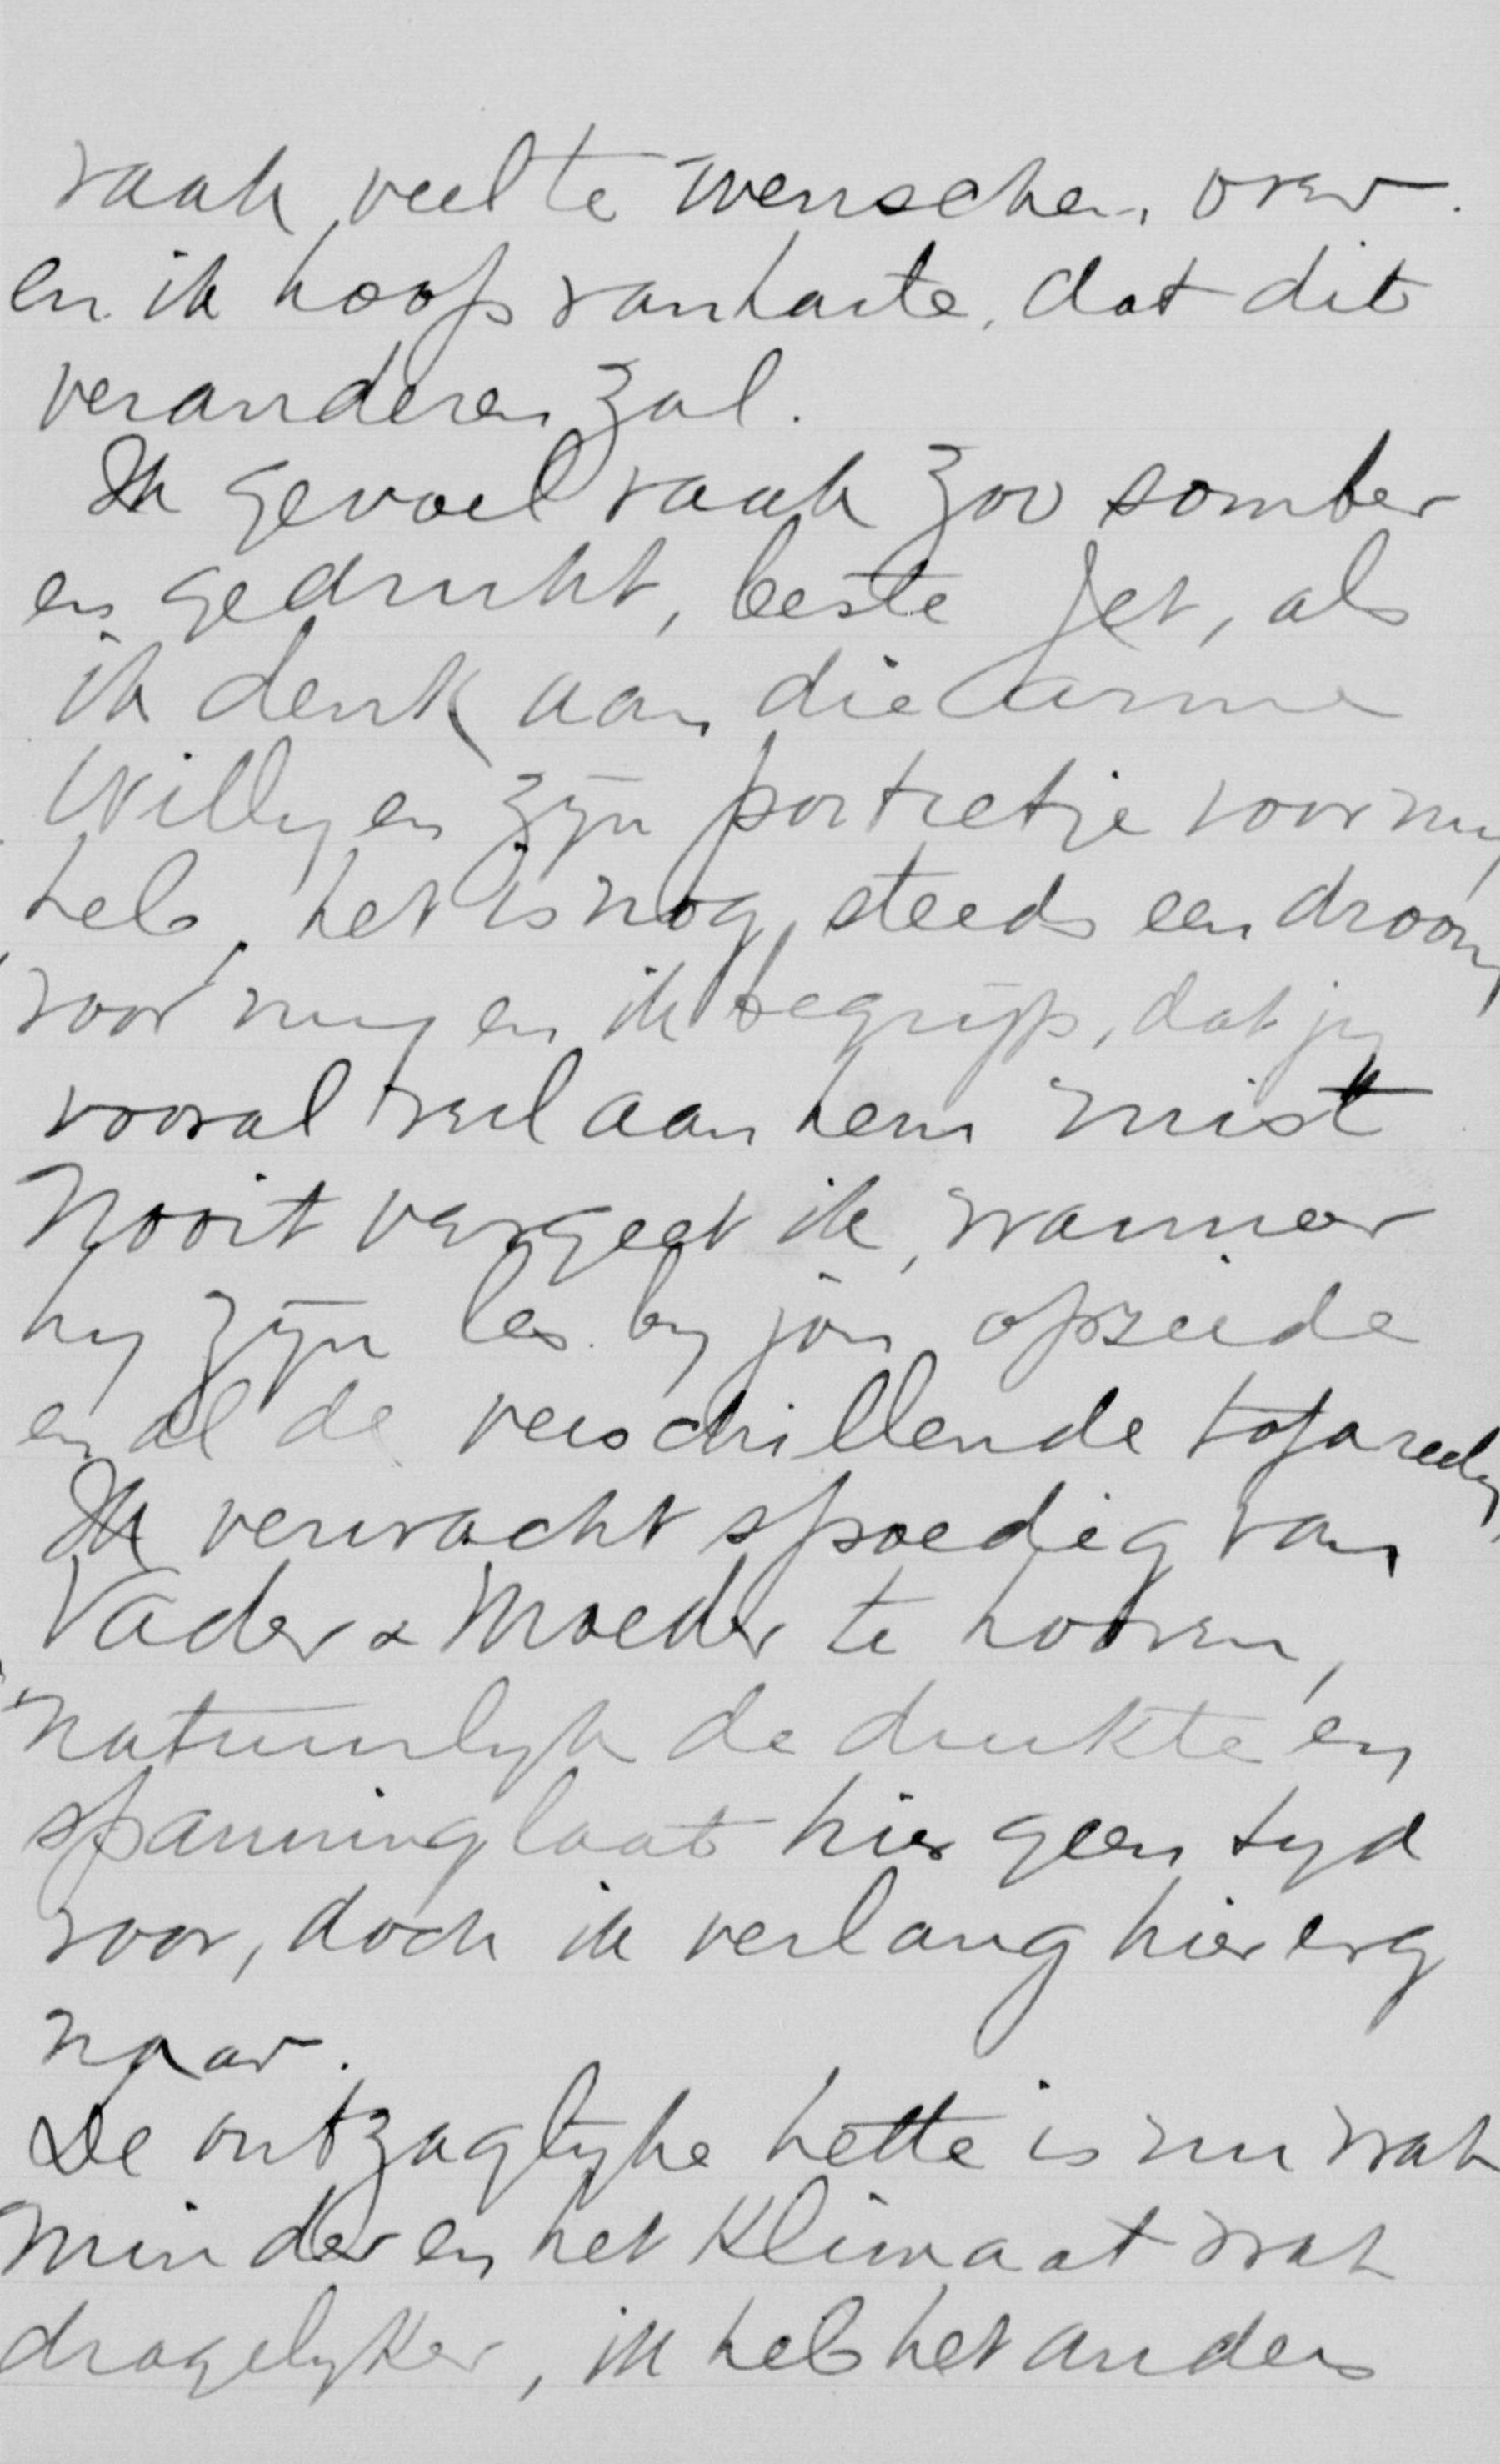 vaak veel te wenschen over.
en ik hoop vanharte, dat dit
veranderen zal.
Ik gevoel vaak zoo somber
en gedrukt, beste Jet, als
ik denk aan die arme
Willy en zijn portretje voor mij
heb, het is nog steeds een droom
voor mij en ik begrijp, dat jij
vooral veel aan hem mist
Nooit vergeet ik, wanneer
hij zijn les bij jou opzeide
en al de verschillende
Ik verwacht spoedig van
Vader & Moeder te hooren,
natuurlijk de drukte en
spanning laat hier geen tijd
voor, doch ik verlang hier erg
naar.
De ontzaglijke hette is nu wat
minder en het klimaat wat
dragelijker, ik heb het anders